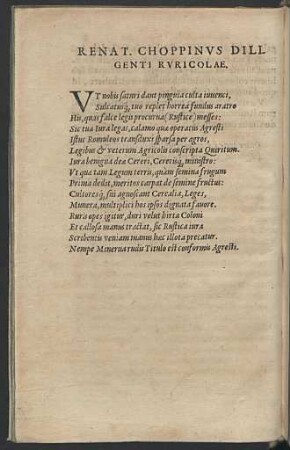 RENAT. CHOPPINVS DILI
GENTI RVRICOLAE,
VT nobis saturi dant pinguia culta iuuenci,
Sulcatusq́; tuo replet horrea fundus aratro
His, quas falce legis procurua (Rustice) messes:
Sic tua Iura legas, calamo quæ operatus Agresti
Istuc Romuleos transduxi sparsa per agros,
Legibus & veterum Agricolis conscripta Quiritum.
Iura benigna dea Ceres, Cereriq́; ministro:
Vt qua tam Legum terris, quàm semina frugum
Prima dedit, meritos carpat de semine fructus:
Cultoresq́; sui agnoscant Cerealia, Leges,
Munera, multiplici hos ipsos dignata fauore.
Ruris opes igitur, duri velut hirta Coloni
Et callosa manus tractat, sic Rustica iura
Scribentis veniam manus hæc illota precatur.
Nempe Minerua rudis Titulo est conformis Agresti.